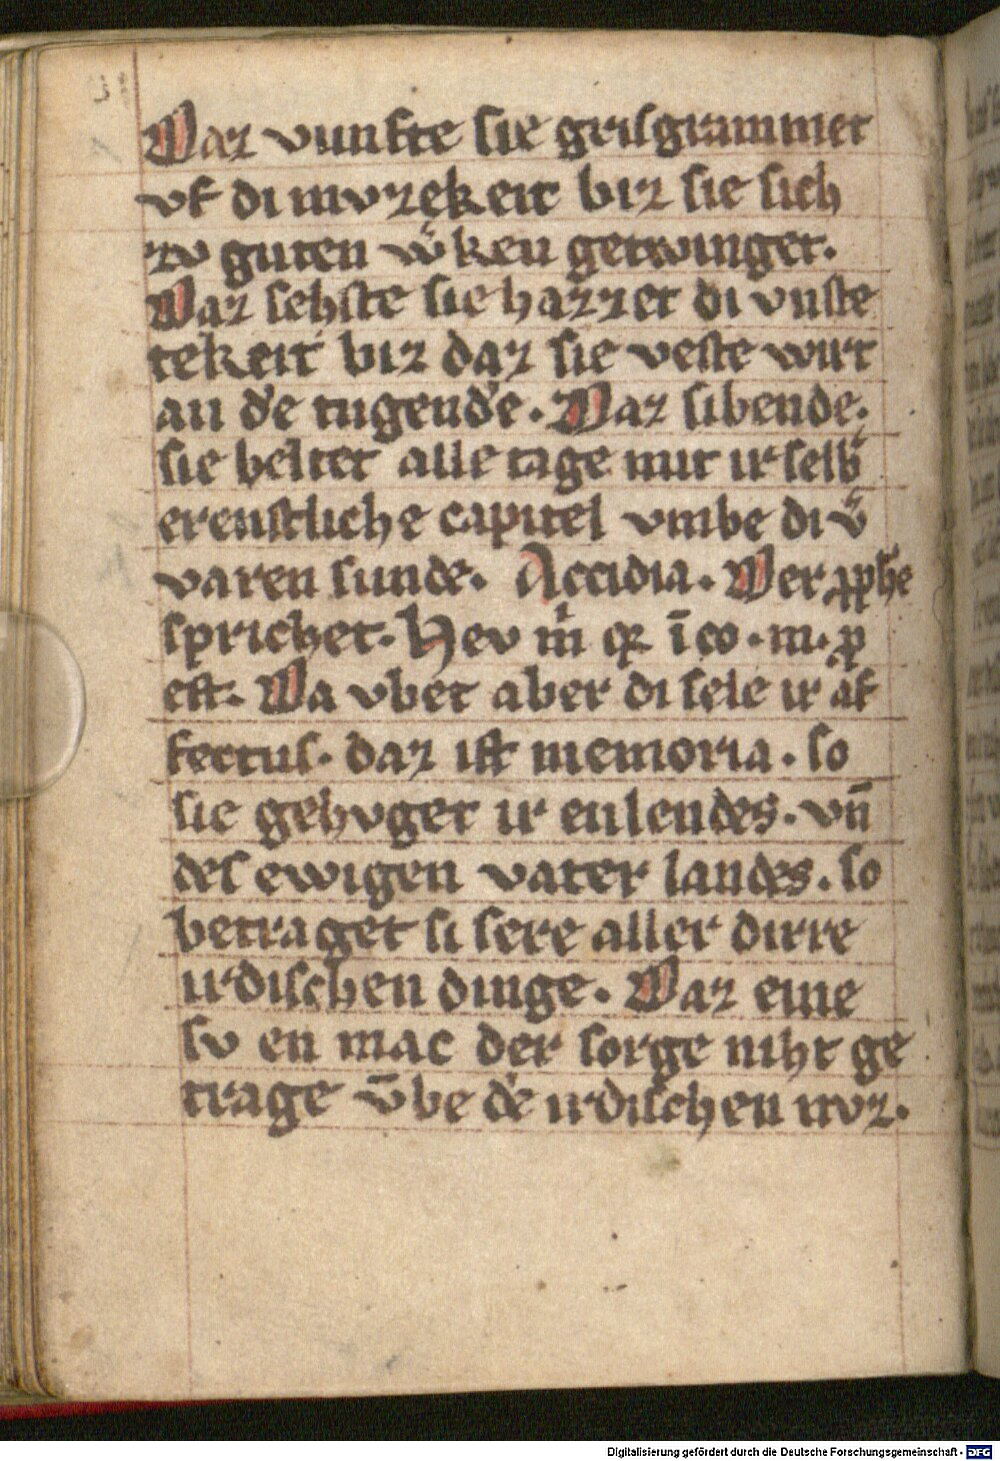 Daz vunfte sie grisgrammet
vf di mvzekeit biz sie sich
zv guten w͛ken getwinget.
Daz sehste sie hazzet di vnste
tekeit biz daz sie veste wirt
an d͛e tugend͛e. Daz sibende.
sie heltet alle tage mit ir selb͛
erenstliche capitel vmbe di v͛
varen sunde. Accidia. Der ꝓphe
sprichet. Hev m̍ qꝛ īco. m. ꝓ
est. Da vbet aber di sele ir af
fectus. daz ist memoria. so
sie gehvget ir enlendes. vn̄
des ewigen vater landes. so
betraget si sere aller dirre
irdischen dinge. Daz eine
sv en mac der sorge niht ge
trage v̄be d͛e irdischen nvz.
Digitalisierung gefördert durch die Deutsche Forschungsgemeinschaft - DFG